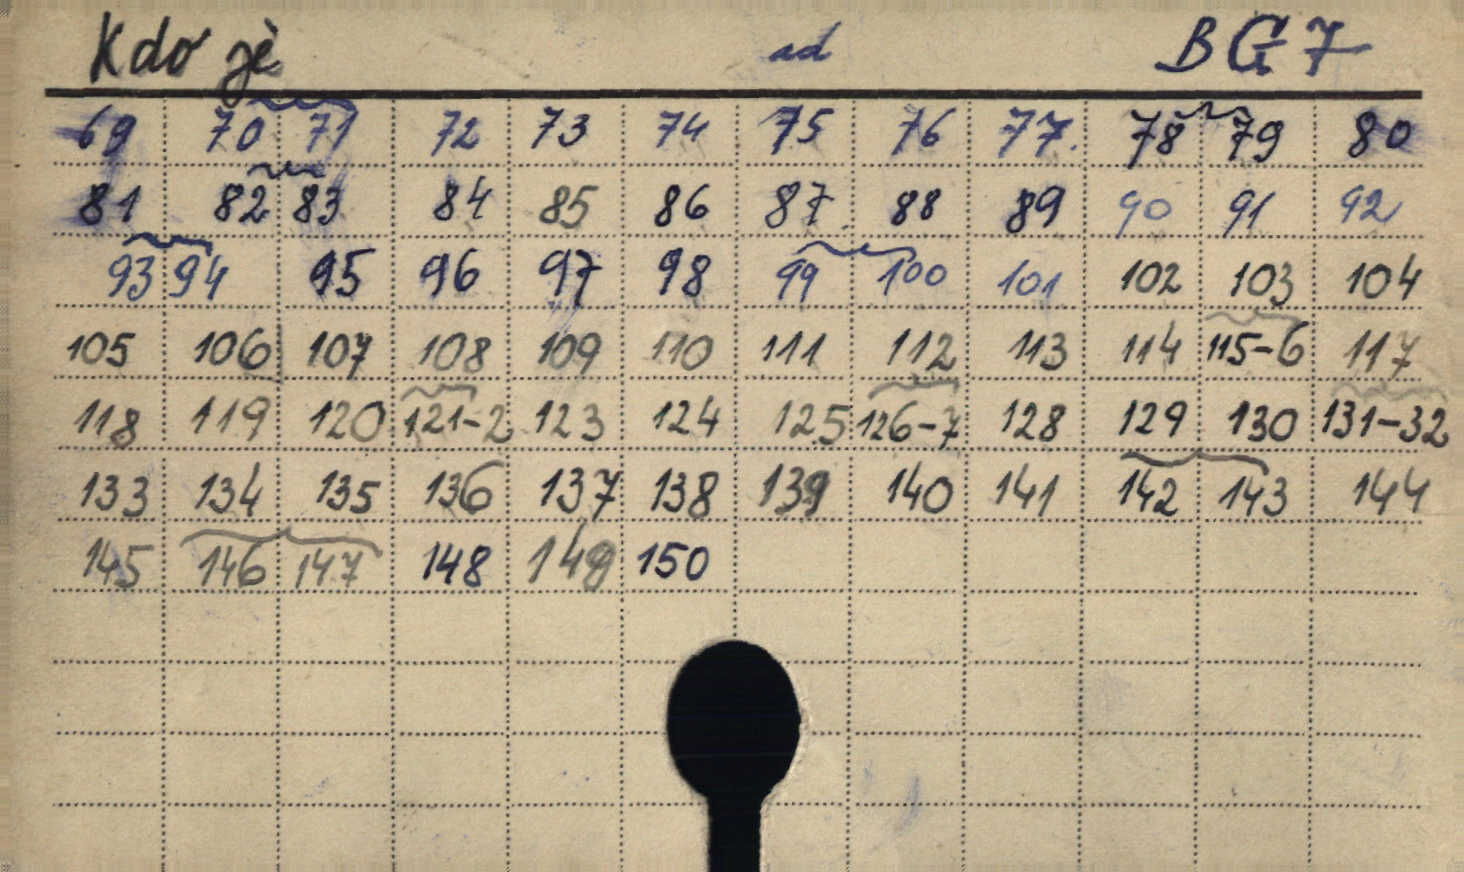 Kdo je ad BG7
69 70 71 72 73 74 75 76 77. 78 79 80
81 82 83 84 85 86 87 88 89 90 91 92
93 94 95 96 97 98 99 100 101 102 103 104
105 106 107 108 109 110 111 112 113 114 115-6 117
118 119 120 121-2 123 124 125 126-7 128 129 130 131-32
133 134 135 136 137 138 139 140 141 142 143 144
145 146 147 148 149 150